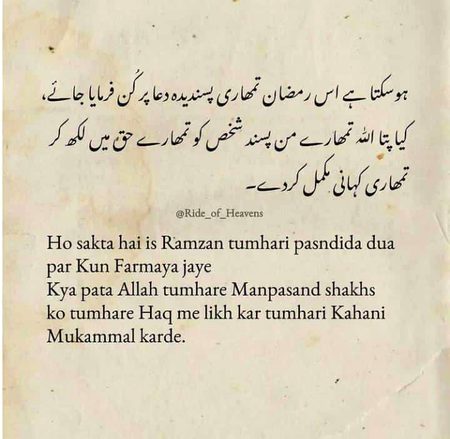 ہوسکتا ہے اس رمضان تمھاری پسندیدہ دعا پر کُن فرمایا جائے،
کیا پتا اللہ تمھارے من پسند شخص کو تمھارے حق میں لکھ کر
تمھاری کہانی مکمل کردے۔
@Ride_of_Heavens
Ho sakta hai is Ramzan tumhari pasndida dua
par Kun Farmaya jaye
Kya pata Allah tumhare Manpasand shakhs
ko tumhare Haq me likh kar tumhari Kahani
Mukammal karde.